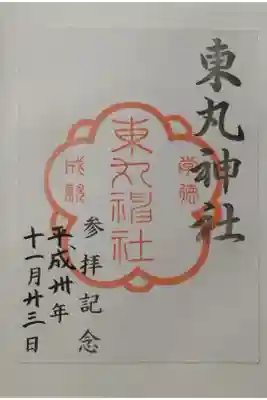 東丸神社
學德
東丸神社
成就
参拝記念
平成卅年
十一月廿三日